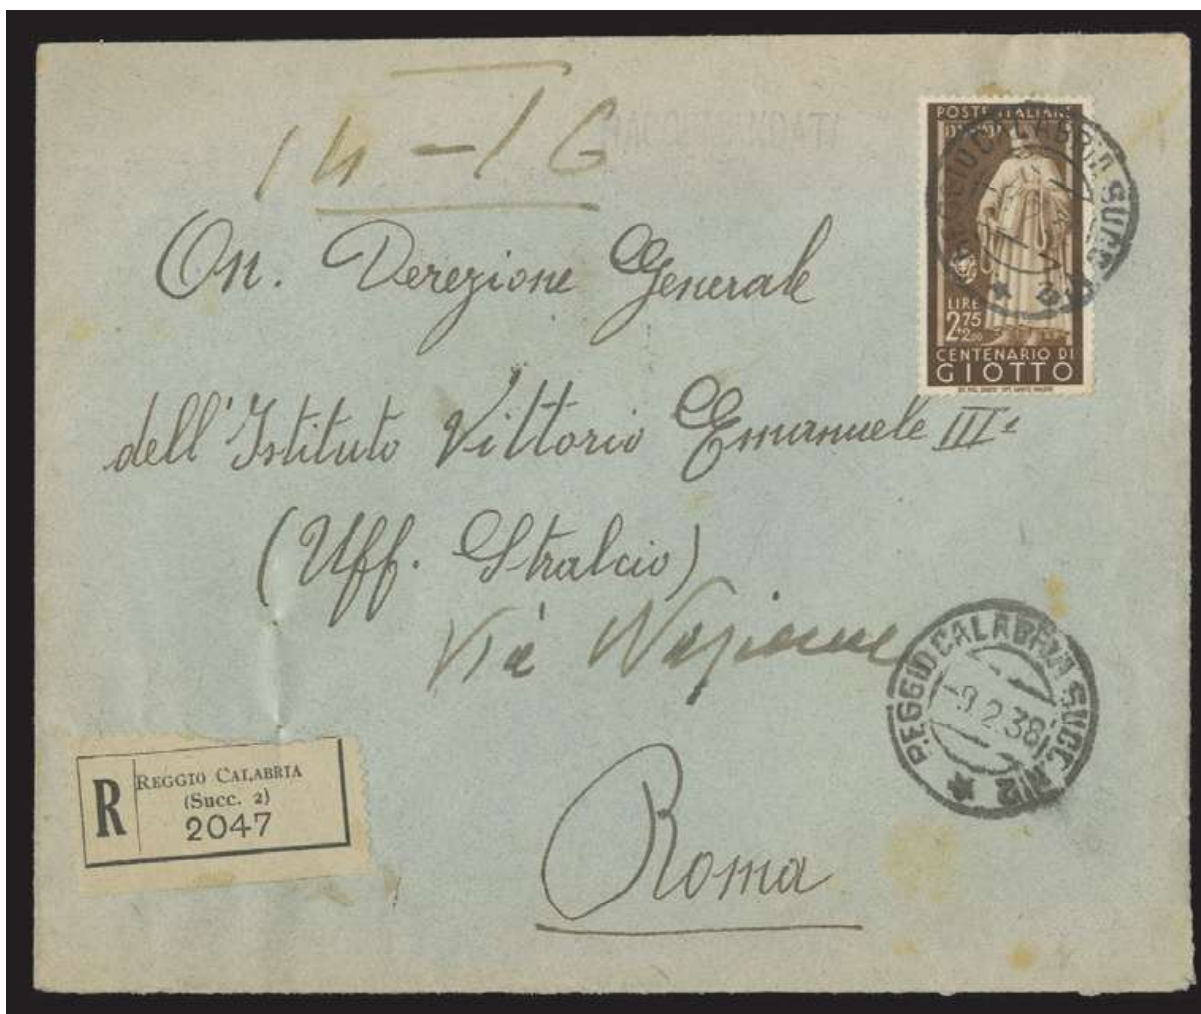 14 - 16
POSTE ITALIANE
LIRE
2,75
+2,00
CENTENARIO DI
GIOTTO
On. Derezione Generale
dell'Istituto Vittorio Emanuele III°
(Uff. Stralcio)
Via
REGGIO CALABRIA SUCC. N2
-9.2.38
R
REGGIO CALABRIA
(Succ. 2)
2047
Roma